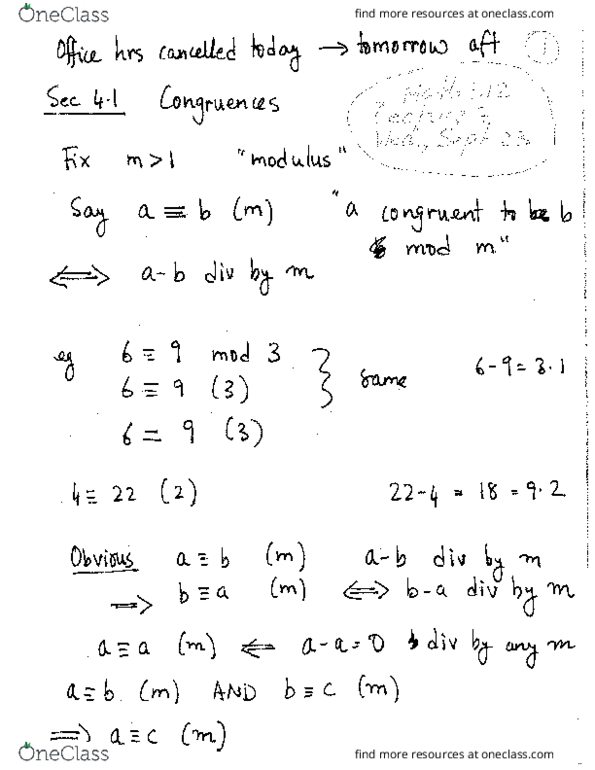 OneClass
find more resources at oneclass.com
Office hrs cancelled today → tomorrow aft
1
Math 312
Lecture 3
Wed, Sept 23
Sec 4.1 Congruences
Fix m>1 "modulus"
Say a ≡ b (m) "a congruent to b
mod m"
⟺ a-b div by m
eg 6 ≡ 9 mod 3
6 ≡ 9 (3) } same 6-9=3·1
6 = 9 (3)
4≡ 22 (2) 22-4 = 18 = 9·2
Obvious a ≡ b (m) a-b div by m
⟹ b ≡ a (m) ⟺ b-a div by m
a ≡ a (m) ⟸ a-a=0 div by any m
a≡b (m) AND b ≡ c (m)
⟹ a ≡ c (m)
OneClass
find more resources at oneclass.com